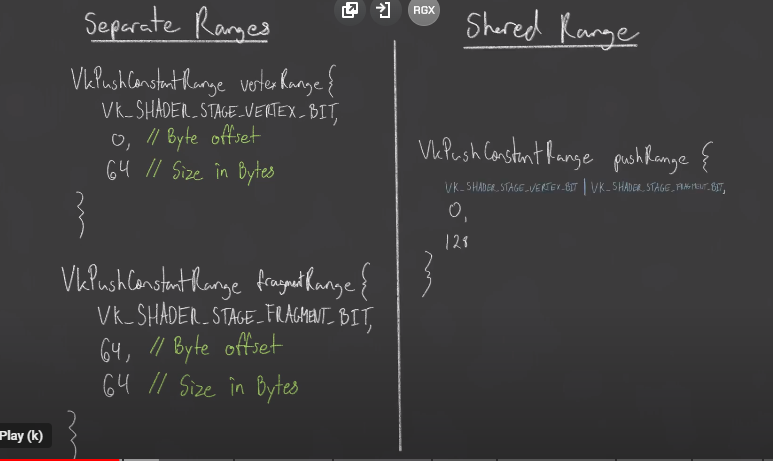 RGX
Separate Ranges
VkPushConstantRange vertexRange {
VK_SHADER_STAGE_VERTEX_BIT,
0, // Byte offset
64 // Size in Bytes
}
VkPushConstantRange fragmentRange {
VK_SHADER_STAGE_FRAGMENT_BIT,
64, // Byte offset
64 // Size in Bytes
}
Shared Range
VkPushConstantRange pushRange {
VK_SHADER_STAGE_VERTEX_BIT | VK_SHADER_STAGE_FRAGMENT_BIT,
0,
128
}
Play (k)